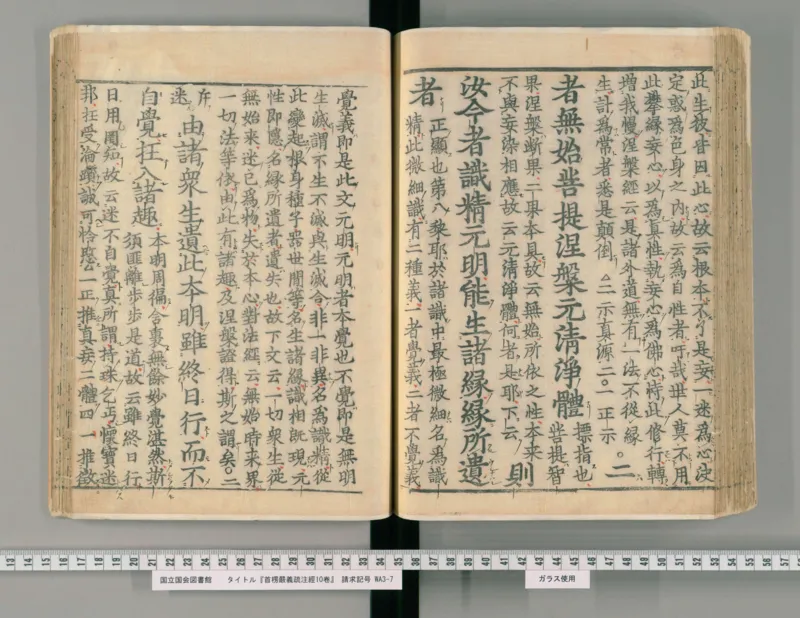 此生彼昔因此心故云根本不了是妄一迷為心決
定惑為色身之内故云為自性者吁哉世人莫不用
此攀緣妄心以為真性執妄心為佛心恃此脩行轉
增我慢涅槃經云是諸外道無有一法不從緣
生計為常者悉是顛倒 △二示真源二。一正示。二
者無始菩提涅槃元清淨體 標指也
菩提智
果涅槃斷果二果本具故云無始所依之性本来
不與妄染相應故云元清淨體何者是耶下云 則
汝今者識精元明能生諸緣緣所遺
者 正顯也第八棃耶於諸識中最極微細名為識
精此微細識有二種義一者覺義二者不覺義
覺義即是此文元明元明者本覺也不覺即是無明
生滅謂不生不滅與生滅合非一非異名為識精從
此變起根身種子器世間等名生諸緣識相既現元
性即隱名緣所遺者遺失也故下文云一切衆生從
無始来迷已為物失於本心對法經云無始時来界
一切法等依由此有諸趣及涅槃證得斯之謂矣○二
斥
迷 由諸衆生遺此本明雖終日行而不
自覺枉入諸趣 本明周徧含裹無餘妙覺湛然斯
須匪離步步是道故云雖終日行
日用罔知故云迷不自覺真所謂持珠乞丐懷寶迷
邦枉受淪躓誠可怜愍 一正推真妄二體四一推徵
国立国会図書館 タイトル『首楞嚴義疏注經10巻』 請求記号 WA3-7
ガラス使用